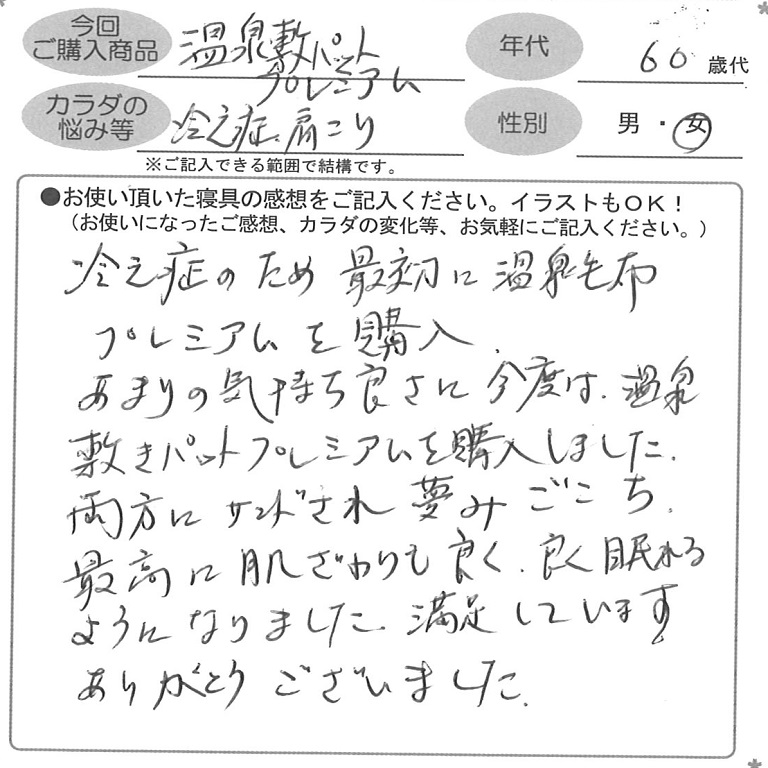 今回
ご購入商品
温泉敷パット
プレミアム
年代
60 歳代
カラダの
悩み等
冷え症、肩こり
性別
男・女
※ご記入できる範囲で結構です。
●お使い頂いた寝具の感想をご記入ください。イラストもOK!
(お使いになったご感想、カラダの変化等、お気軽にご記入ください。)
冷え症のため 最初に 温泉毛布
プレミアムを購入、
あまりの気持ち良さに 今度は、温泉
敷きパットプレミアムを購入しました。
両方に サンドされ 夢みごこち、
最高に 肌ざわりも 良く、良く眠れる
ようになりました。満足しています
ありがとうございました。